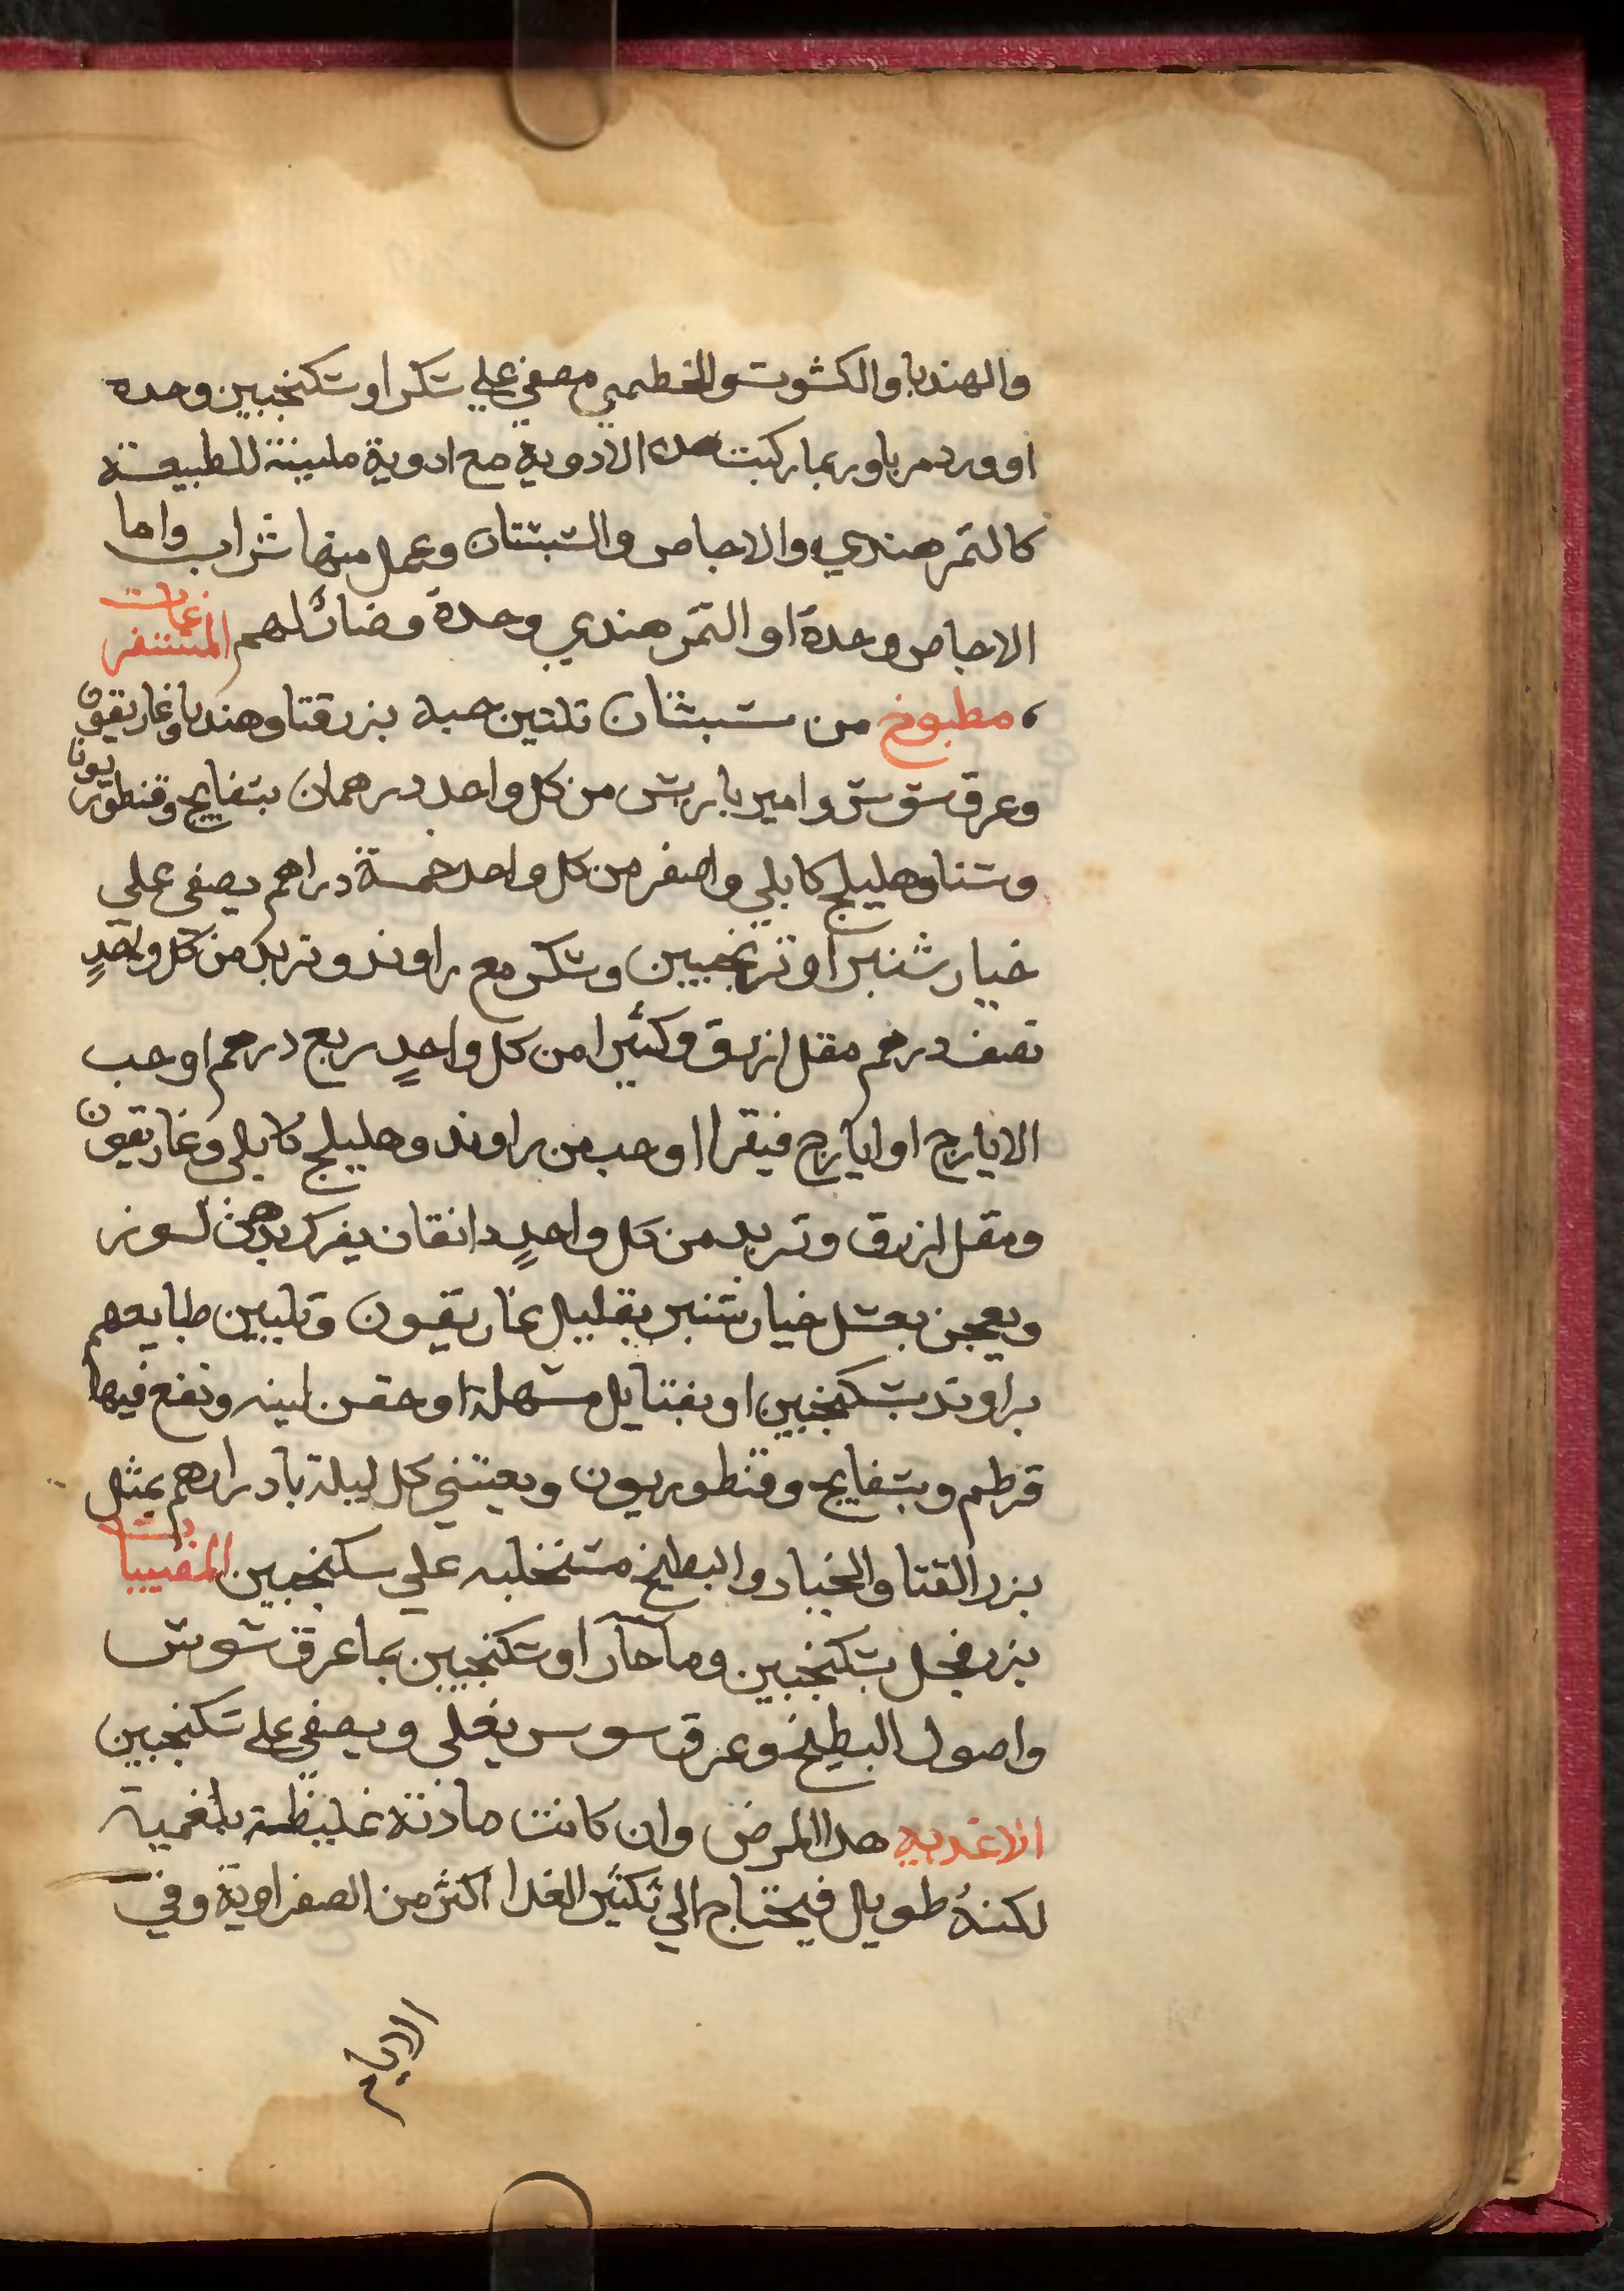 والهندبا والكشوت والخطمي مصفي علي سكر او سكنجبين وحده
او ورد مربا وربما ركبت هده الادوية مع ادوية ملينة للطبيعة
كالتمر هندي والاجاص والسبستان وعمل منها شراب واما
الاجاص وحدة او التمر هندي وحدة وضائلهم المستفرغات
مطبوخ من سبستان تلتين حبة بزرقتا وهندبا وغاريقون
وعرق سوس وامير باريس من كل واحد درهمان بسفايج وقنطوريونا
وسنا وهليلج كابلي واصفر من كل واحد خمسة دراهم يصفى علي
خيار شنبر او ترنجبين وسكر مع راوند وتربد من كل واحدٍ
نصف درهم مقل ازرق وكثيرا من كل واحدٍ ربع درهم او حب
الايارج او ايارج فيقرا او حب من راوند وهليلج كابلي وغاريقون
ومقل ازرق وتربد من كل واحدٍ دانقان يفرك بدهن لوز
ويعجن بعسل خيار شنبر بقليل غاريقون وتليين طبايعهم
براوند بسكنجبين او بفتايل مسهلة او حقن لينه ونفع فيها
قرطم وبسفايج وقنطوريون ويعتني كل ليلة بادرارهم بمثل
بزر القتا والخيار والبطيخ مستخلبه علي سكنجبين المقييات
بزر فجل بسكنجبين وما حار او سكنجبين بما عرق سوس
واصول البطيخ وعرق سوس يغلى ويصفي على سكنجبين
الاغديه هدا المرض وان كانت مادته غليظة بلغمية
لكنهُ طويل فيحتاج الي تكثير الغدا اكثر من الصفراوية وفي